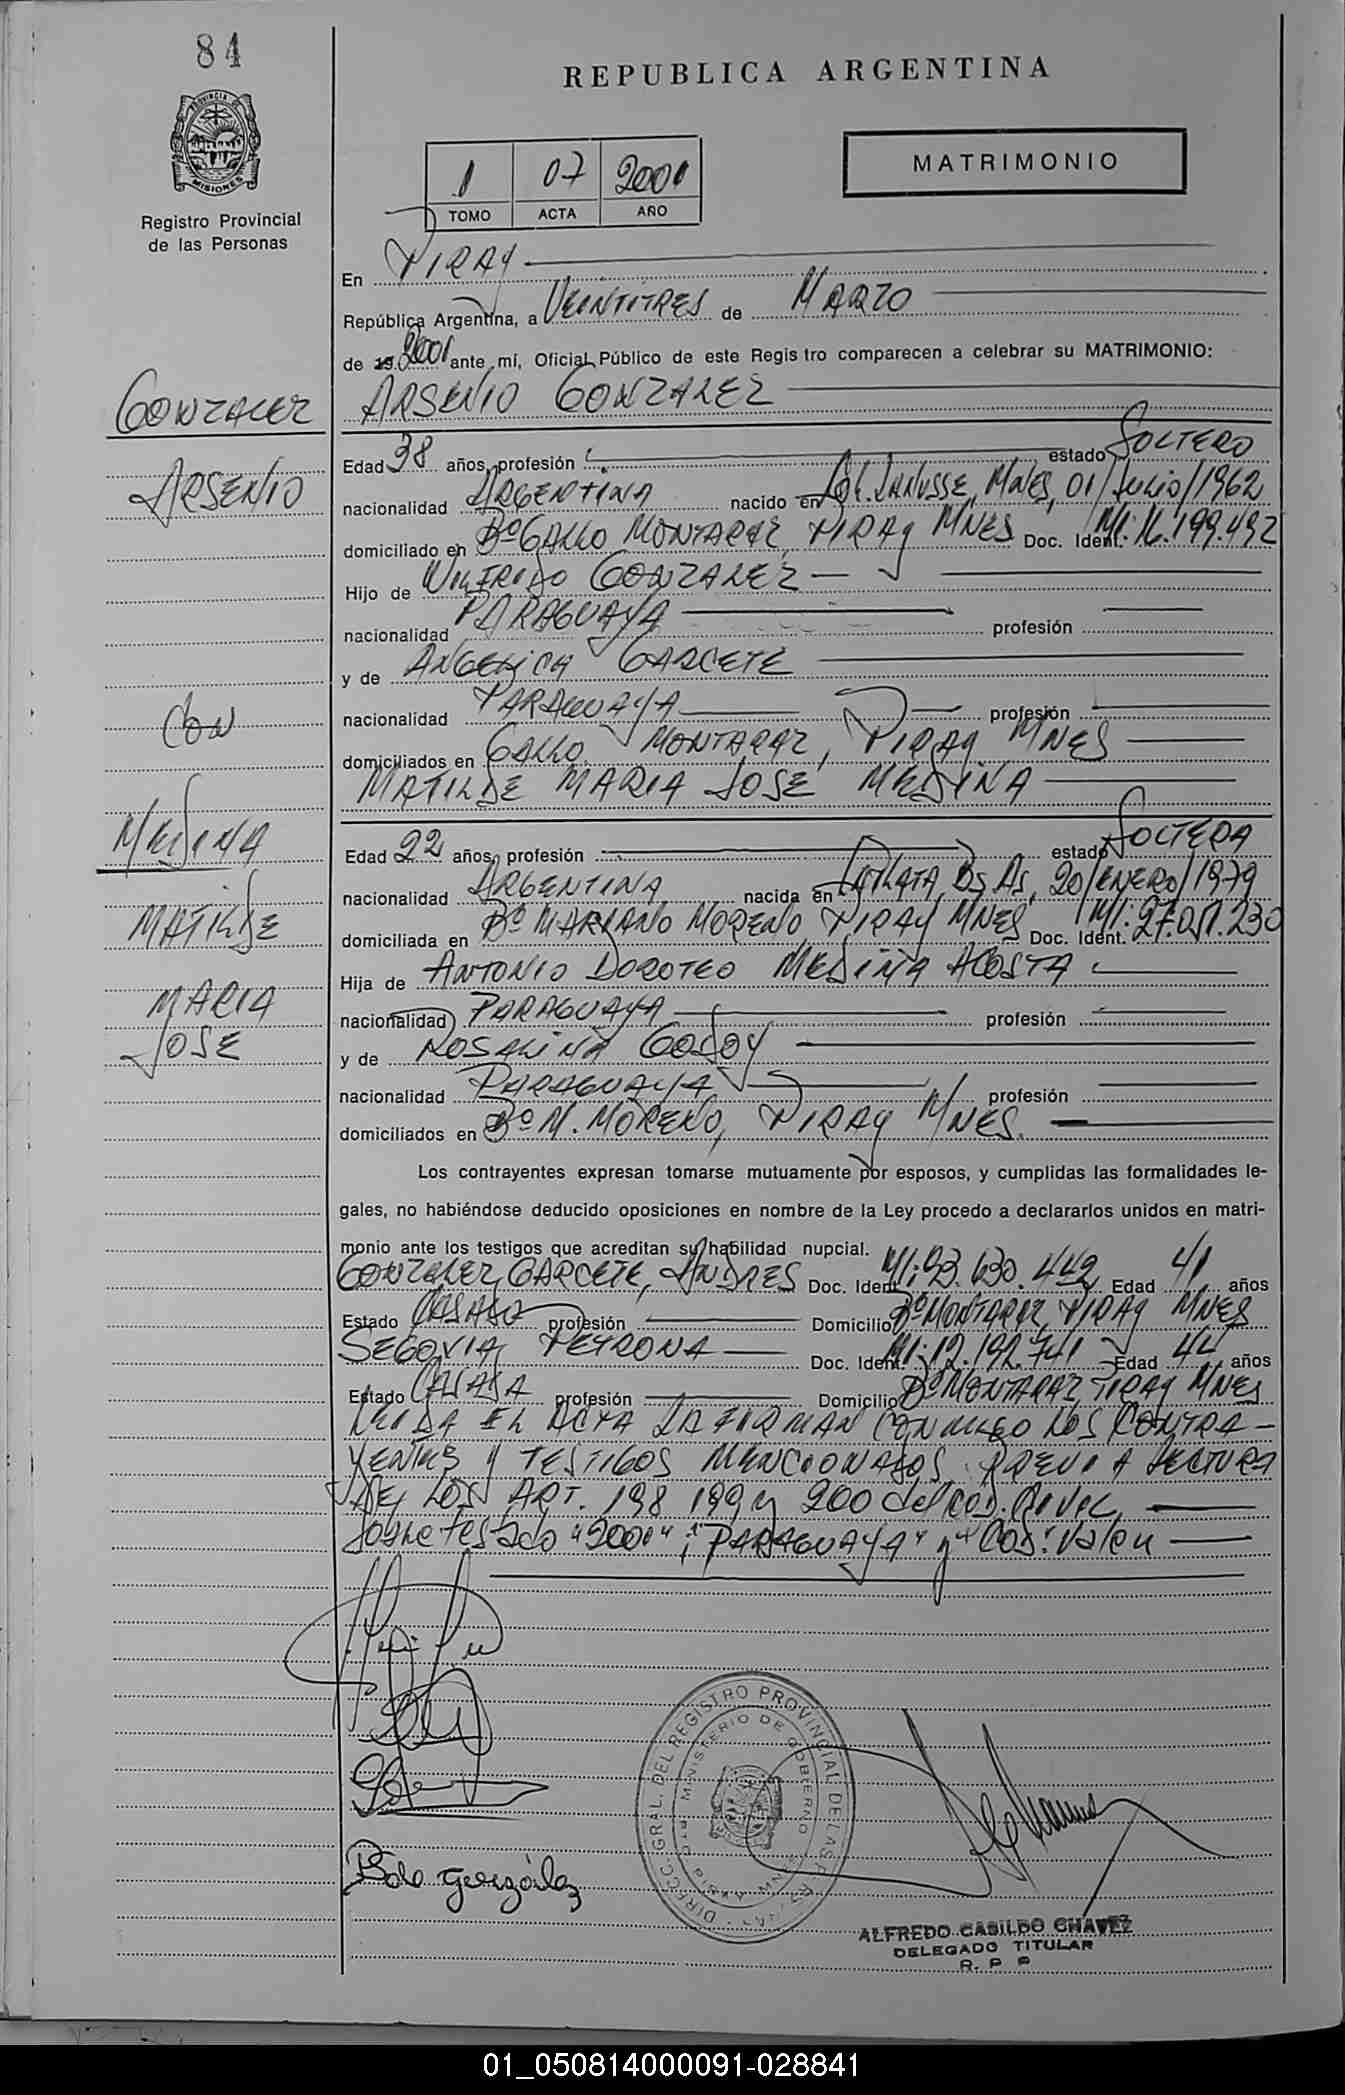 84
REPUBLICA ARGENTINA
PROVINCIA DE
MISIONES
Registro Provincial
de las Personas
MATRIMONIO
1 07 2001
TOMO ACTA AÑO
En PIRAY
República Argentina, a VEINTITRES de MARZO
de 19 2001 ante mí, Oficial Público de este Registro comparecen a celebrar su MATRIMONIO:
GONZALEZ
ARSENIO
CON
MEDINA
MATILDE
MARIA
JOSE
ARSENIO GONZALEZ
Edad 38 años, profesión estado SOLTERO
nacionalidad ARGENTINA nacido en Col. LANUSSE, MNES, 01/Julio/1962
domiciliado en Bº GALLO MONTARAZ, PIRAY MNES Doc. Ident. MI: 16.199.492
Hijo de WILFRIDO GONZALEZ
nacionalidad PARAGUAYA profesión
y de ANGELICA GARCETE
nacionalidad PARAGUAYA profesión
domiciliados en GALLO MONTARAZ, PIRAY MNES
MATILDE MARIA JOSE MEDINA
Edad 22 años, profesión estado SOLTERA
nacionalidad ARGENTINA nacida en LA PLATA, Bs As, 20/ENERO/1979
domiciliada en Bº MARIANO MORENO PIRAY MNES Doc. Ident. MI: 27.051.230
Hija de ANTONIO DOROTEO MEDINA ACOSTA
nacionalidad PARAGUAYA profesión
y de ROSALINA GODOY
nacionalidad PARAGUAYA profesión
domiciliados en Bº M. MORENO, PIRAY MNES.
Los contrayentes expresan tomarse mutuamente por esposos, y cumplidas las formalidades le-
gales, no habiéndose deducido oposiciones en nombre de la Ley procedo a declararlos unidos en matri-
monio ante los testigos que acreditan su habilidad nupcial.
GONZALEZ GARCETE, ANDRES Doc. Ident. MI: 93.630.442 Edad 41 años
Estado CASADO profesión Domicilio Bº MONTARAZ, PIRAY MNES
SEGOVIA PETRONA Doc. Ident. MI: 12.192.741 Edad 44 años
Estado CASADA profesión Domicilio Bº MONTARAZ PIRAY MNES
LEIDA EL ACTA LA FIRMAN CONMIGO LOS CONTRA-
YENTES Y TESTIGOS MENCIONADOS, PREVIA LECTURA
DE LOS ART. 198 199 y 200 del COD. CIVIL,
sobre testado "2001"; "PARAGUAYA" y "COD." valen
DIRECC. GRAL. DEL REGISTRO PROVINCIAL DE LAS PERSONAS
MINISTERIO DE GOBIERNO
González
ALFREDO CASILDO CHAVEZ
DELEGADO TITULAR
R. P. P.
01_050814000091-028841